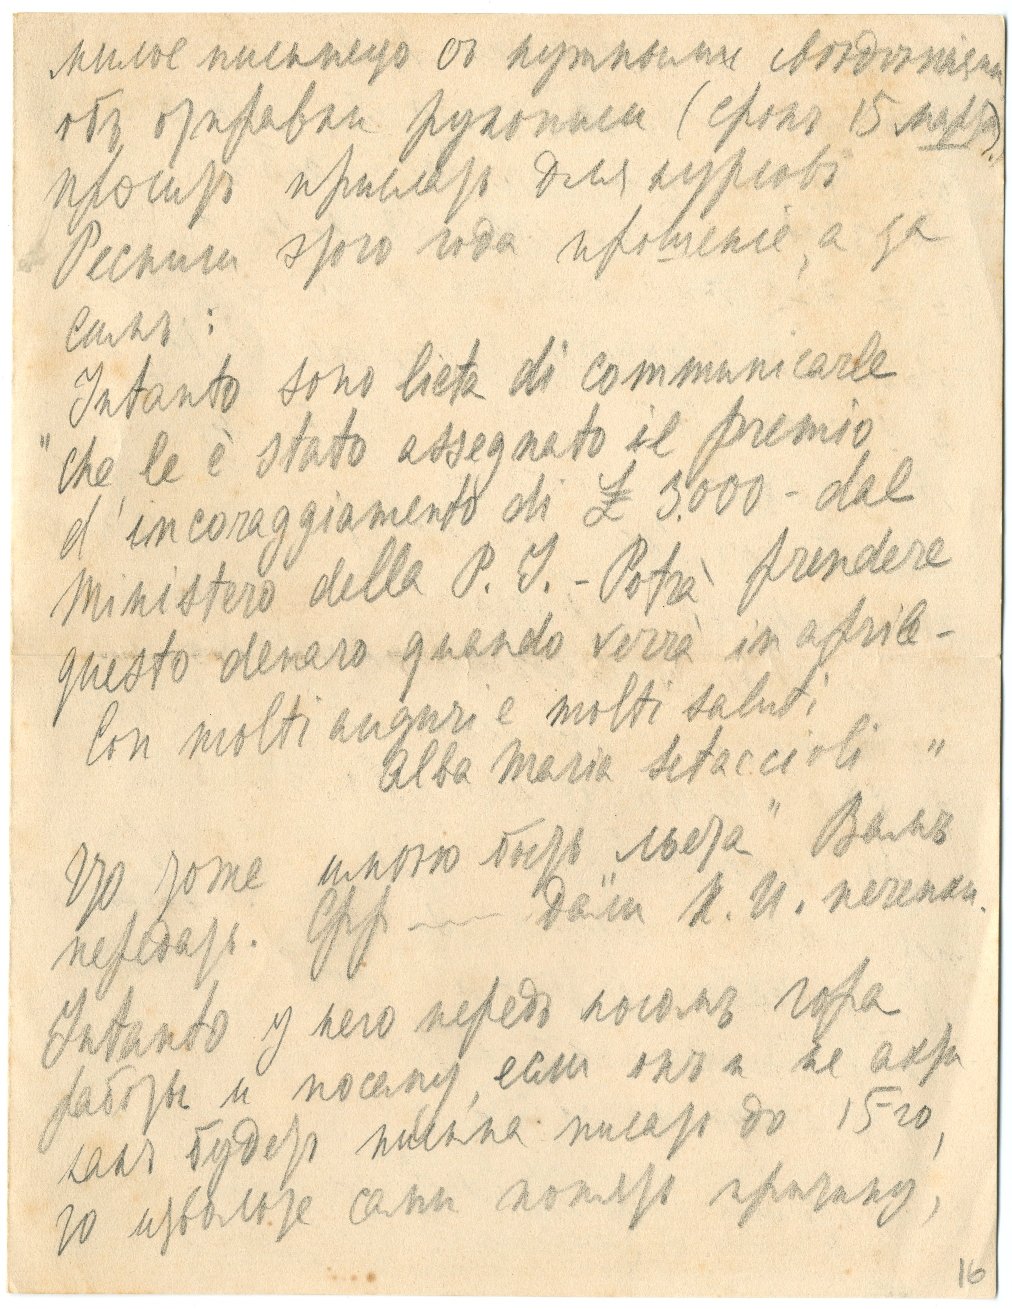 милое письмецо съ нужными свѣдѣніями
объ отправки рукописи (срокъ 15 марта),
проситъ прислать для курсовъ
Респиги этого года прошеніе, а за
симъ:
Intanto sono lieta di communicarle
"che le è stato assegnato il premio
d'incoraggiamento di £ 3.000 - dal
Ministero della P. I. - Potrà prendere
questo denaro quando verrà in aprile -
Con molti auguri e molti saluti
Alba Maria Setaccioli "
Что тоже имѣю быть "Вамъ
передать. дали К. И.
Intanto у него передъ носомъ гора
работы и посему, если онъ и не ахти
какъ будетъ письма писать до 15-го,
то извольте сами понять причину,
16